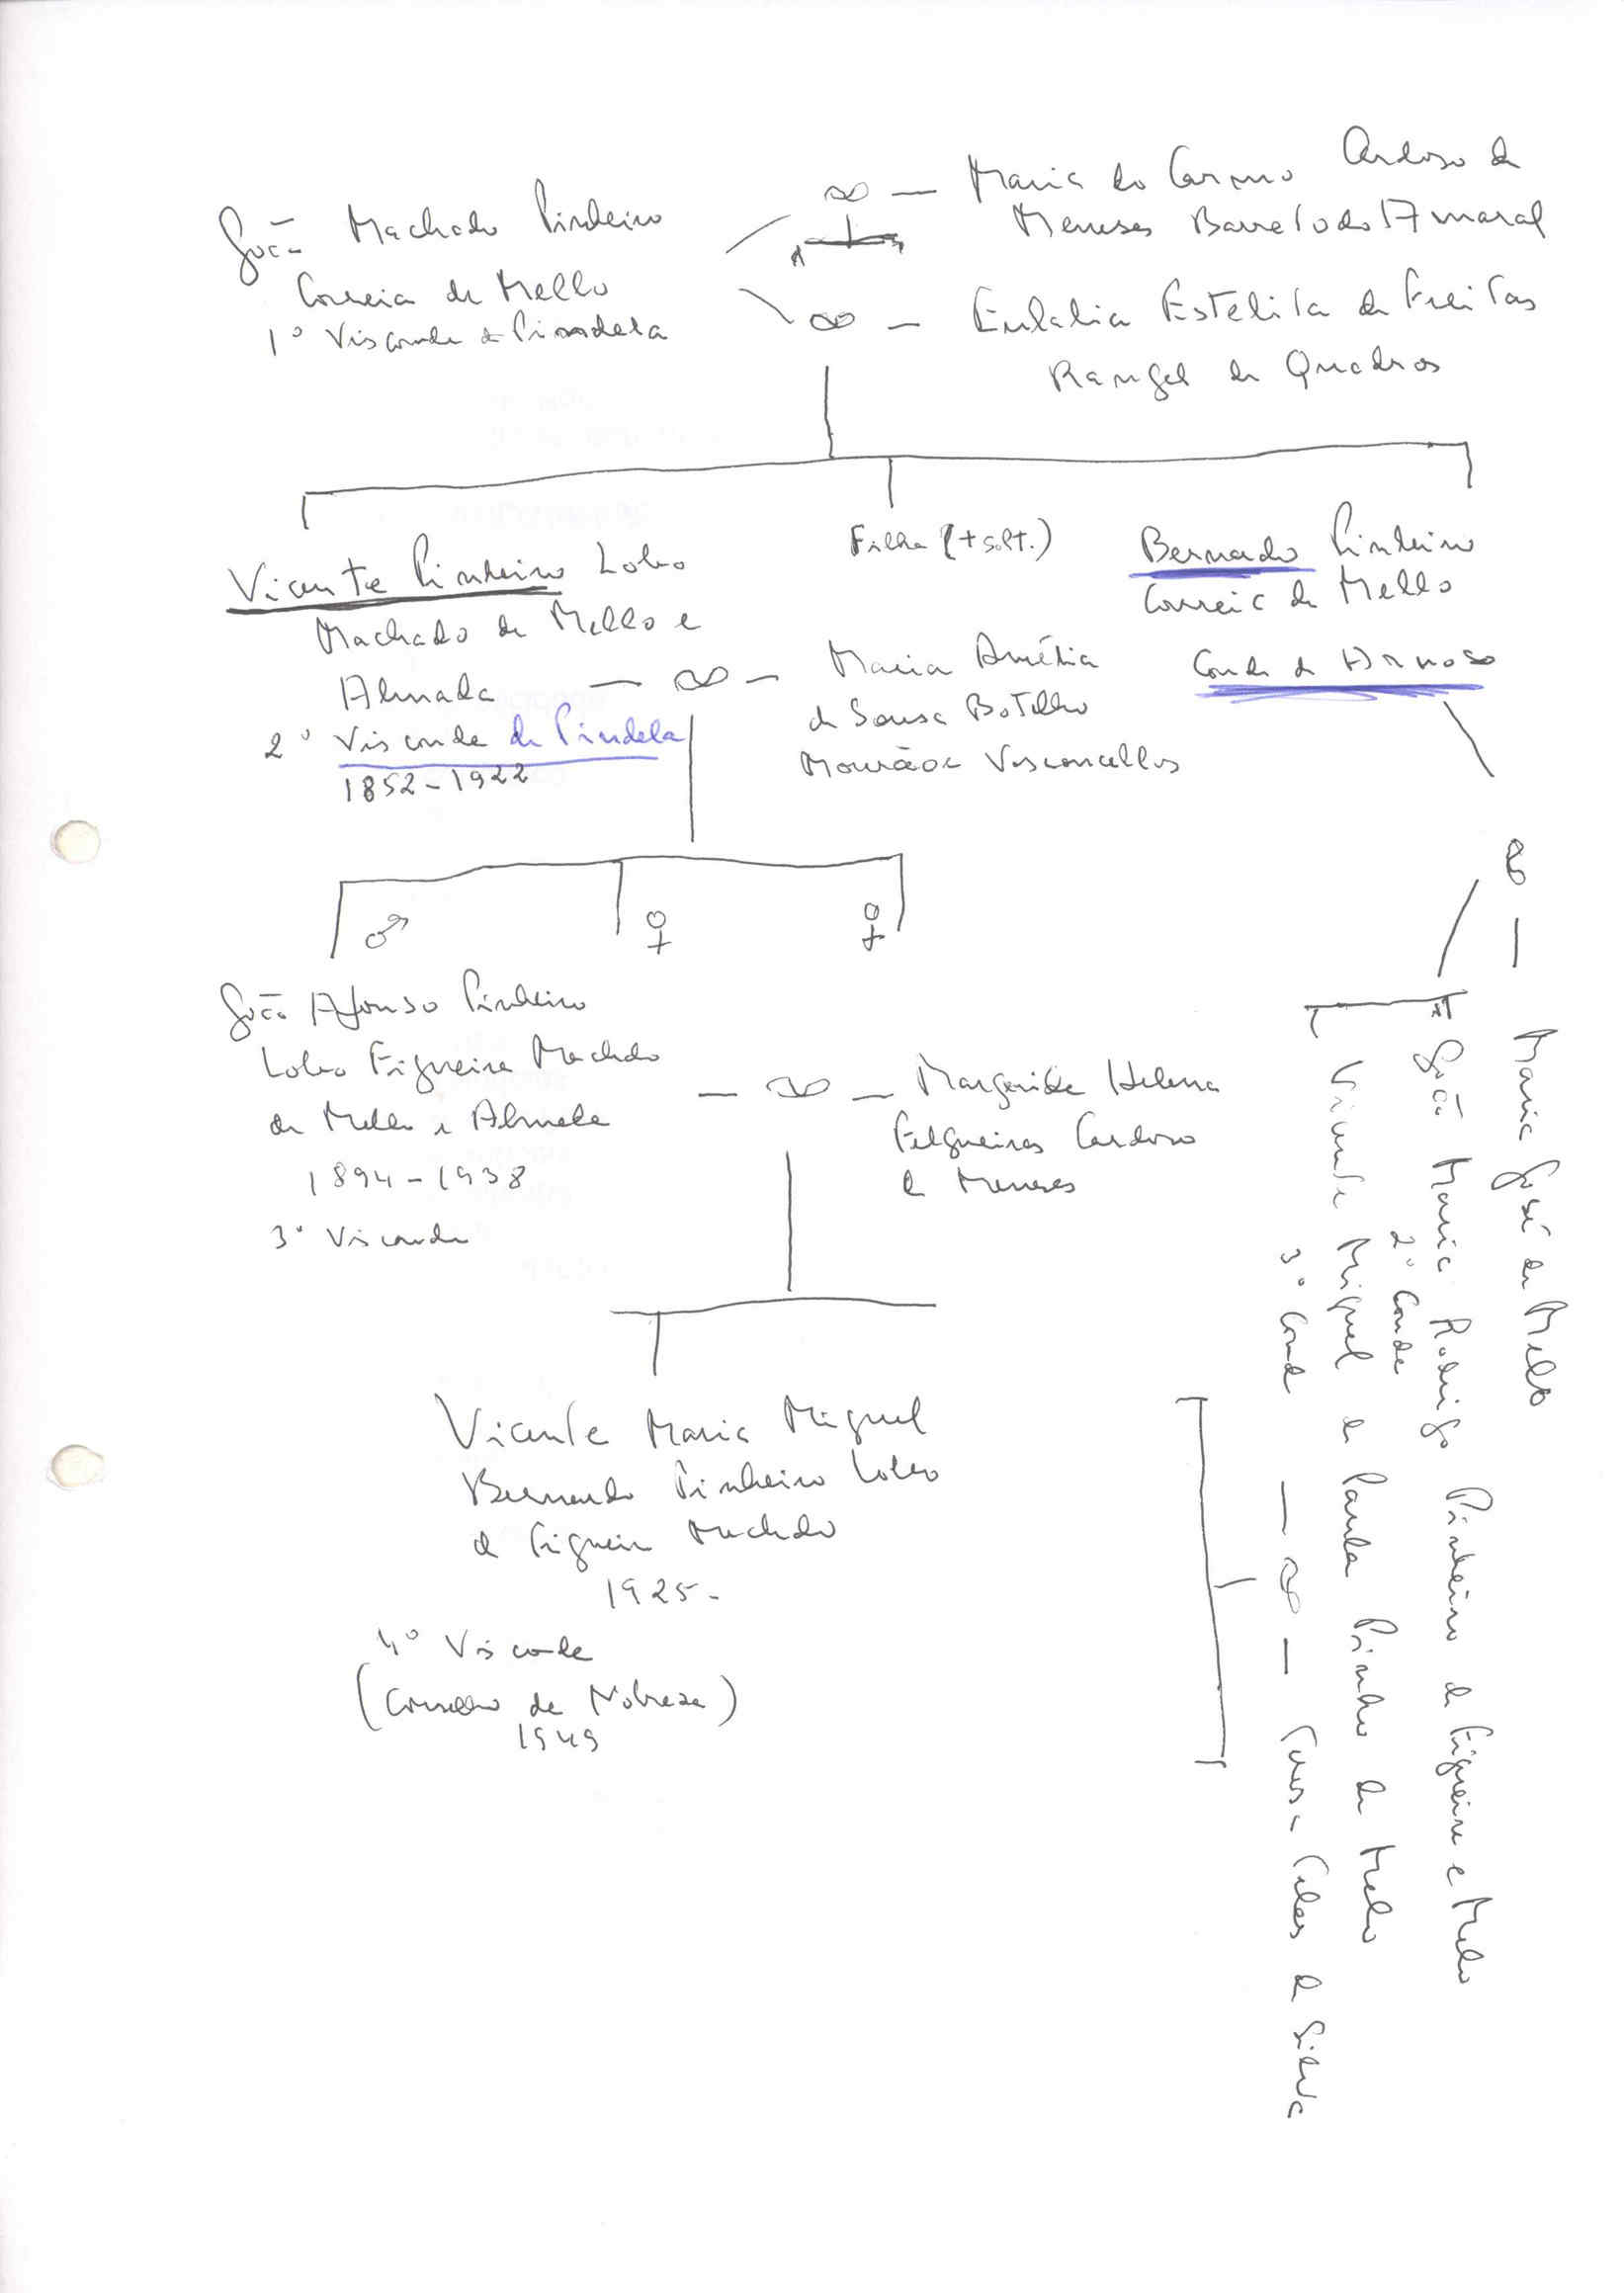 João Machado Pinheiro
Correia de Mello
1º Visconde de Pindela
∞ — Maria do Carmo Cardoso de
Meneses Barreto do Amaral
∞ — Eulalia Estelita de Freitas
Rangel de Quadros
Vicente Pinheiro Lobo
Machado de Mello e
Almada
2º Visconde de Pindela
1852-1922
— ∞ — Maria Amélia
de Sousa Botelho
Mourão e Vasconcellos
Filha (+ solt.)
Bernardo Pinheiro
Correia de Mello
Conde de Arnoso
♂ ♀ ♀
João Afonso Pinheiro
Lobo Figueira Machado
de Mello e Almada
1894-1938
3º Visconde
— ∞ — Margarida Helena
Felgueiras Cardoso
de Meneses
Vicente Maria Miguel
Bernardo Pinheiro Lobo
de Figueira Machado
1925-
4º Visconde
(Conselho de Nobreza)
1949
∞ — Maria José de Mello
João Maria Rodrigo Pinheiro de Figueira e Melo
2º Conde
Vicente Miguel de Paula Pinheiro de Melo
3º Conde — ∞ — Teles da Silva